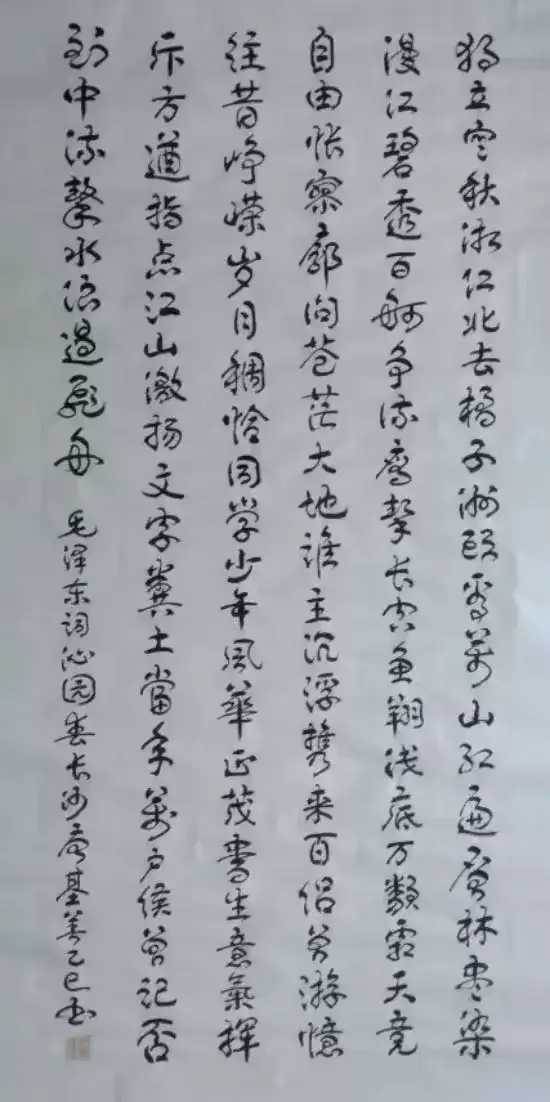 独立寒秋湘江北去橘子洲头看萬山红遍层林枣染
漫江碧透百舸争流鹰擊长空鱼翔浅底万類霜天竞
自由怅寥廓问苍茫大地谁主沉浮携来百侣曾游憶
往昔峥嵘岁月稠恰同学少年風華正茂书生意氣揮
斥方遒指点江山激扬文字糞土當年萬户侯曾记否
到中流擊水浪遏飛舟 毛泽东词沁园春长沙 基善乙巳书